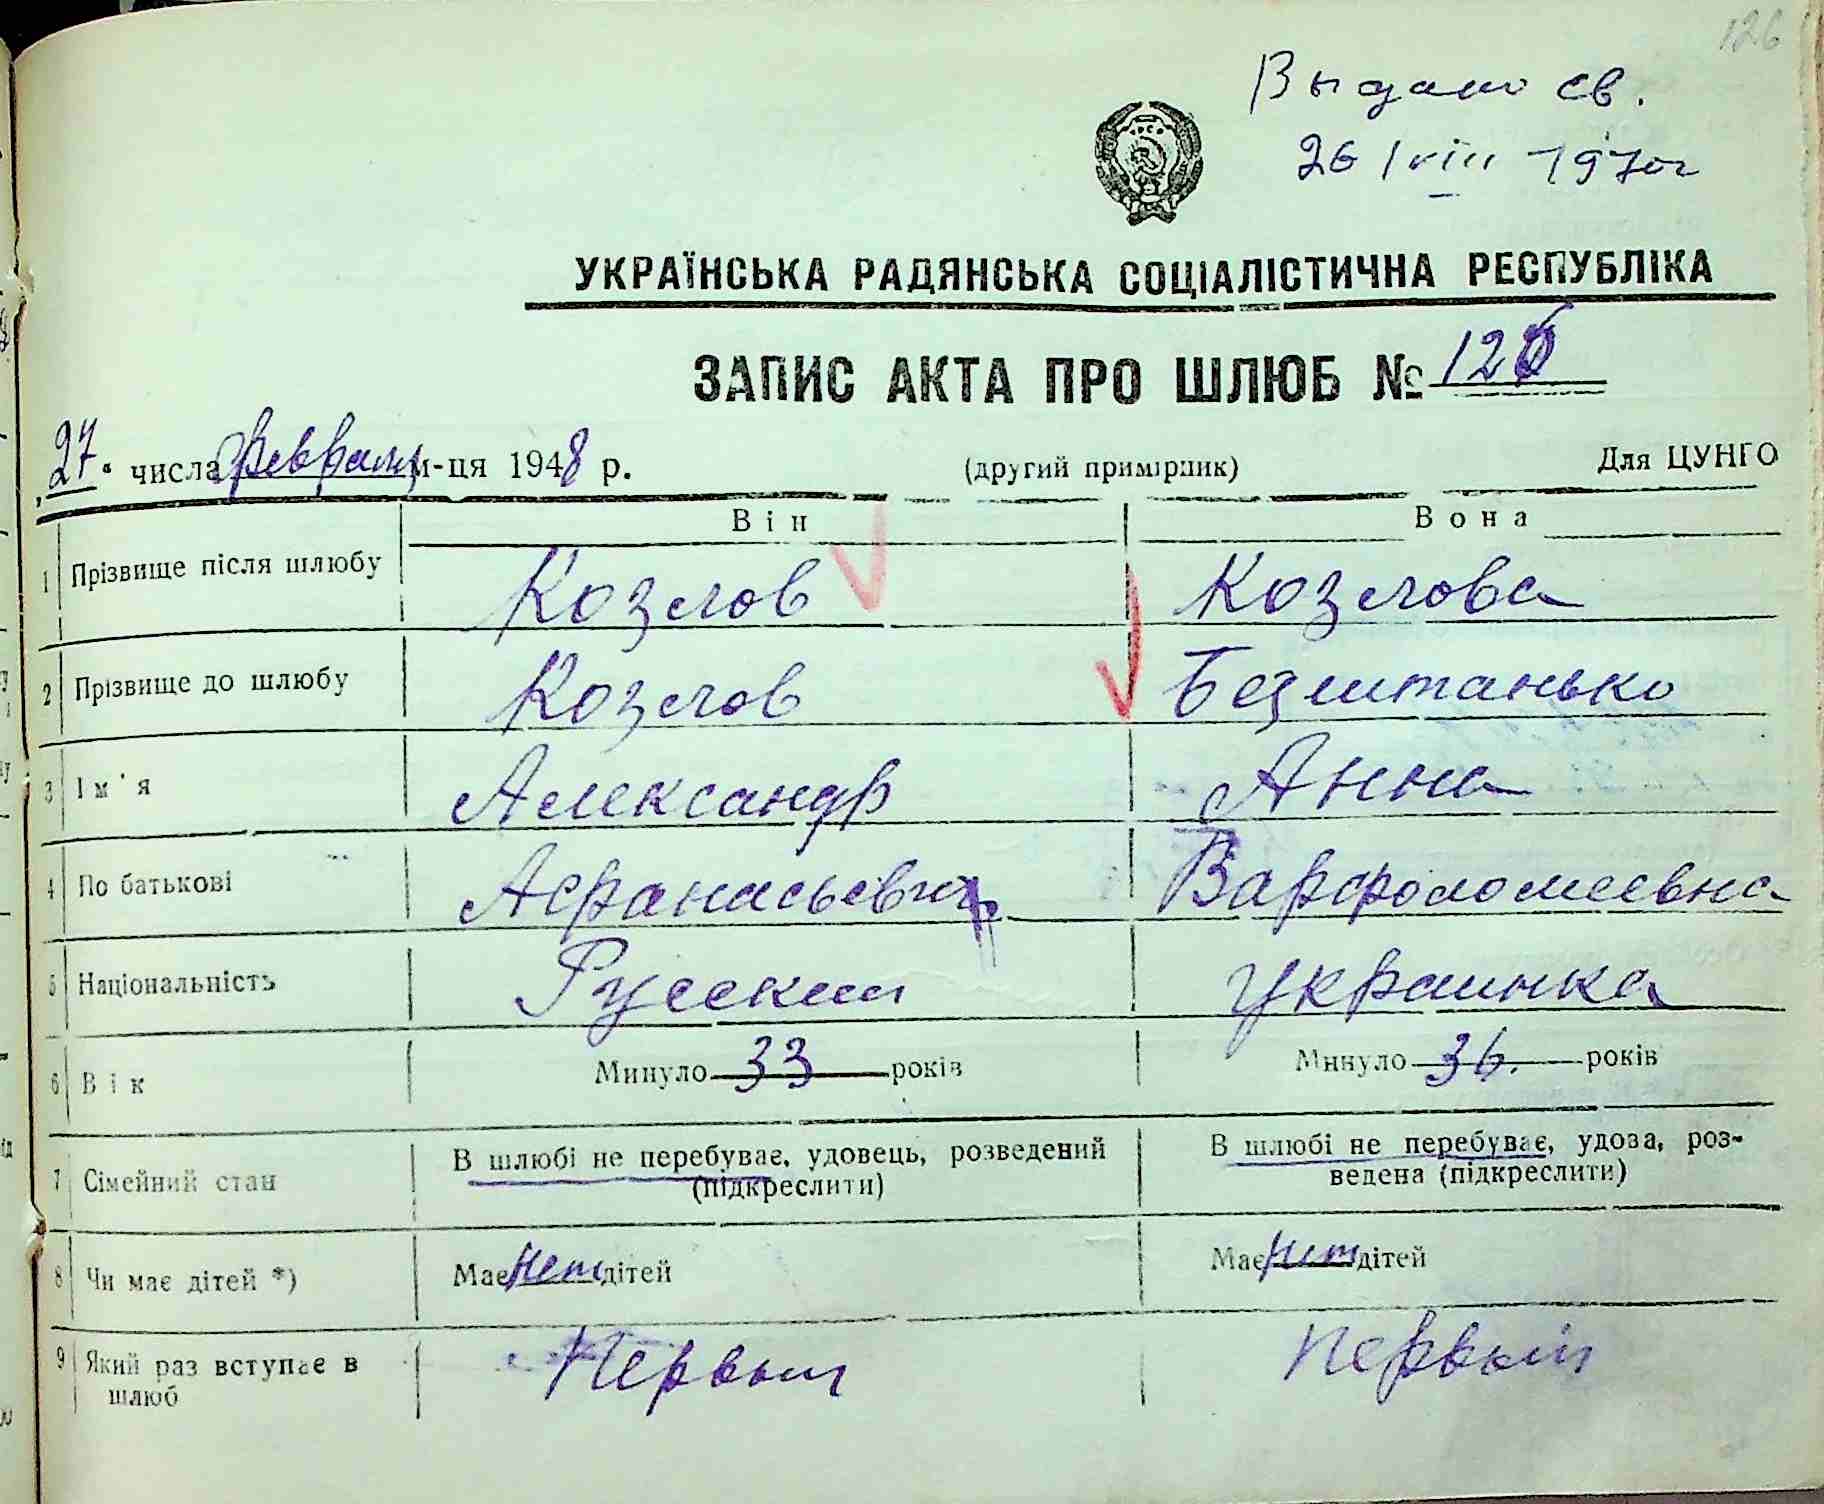 126
Выдано св.
26/VIII-1970г
УКРАЇНСЬКА РАДЯНСЬКА СОЦІАЛІСТИЧНА РЕСПУБЛІКА
ЗАПИС АКТА ПРО ШЛЮБ № 126
„27“ числа февраля м-ця 1948 р. (другий примірник) Для ЦУНГО
Він Вона
1 Прізвище після шлюбу Козлов Козлова
2 Прізвище до шлюбу Козлов Безштанько
3 Ім'я Александр Анна
4 По батькові Афанасьевич Варфоломеевна
5 Національність Русский Украинка
6 Вік Минуло 33 років Минуло 36 років
7 Сімейний стан В шлюбі не перебуває, удовець, розведений (підкреслити) В шлюбі не перебуває, удова, роз-
ведена (підкреслити)
8 Чи має дітей *) Має нет дітей Має нет дітей
9 Який раз вступає в шлюб Первый Первый